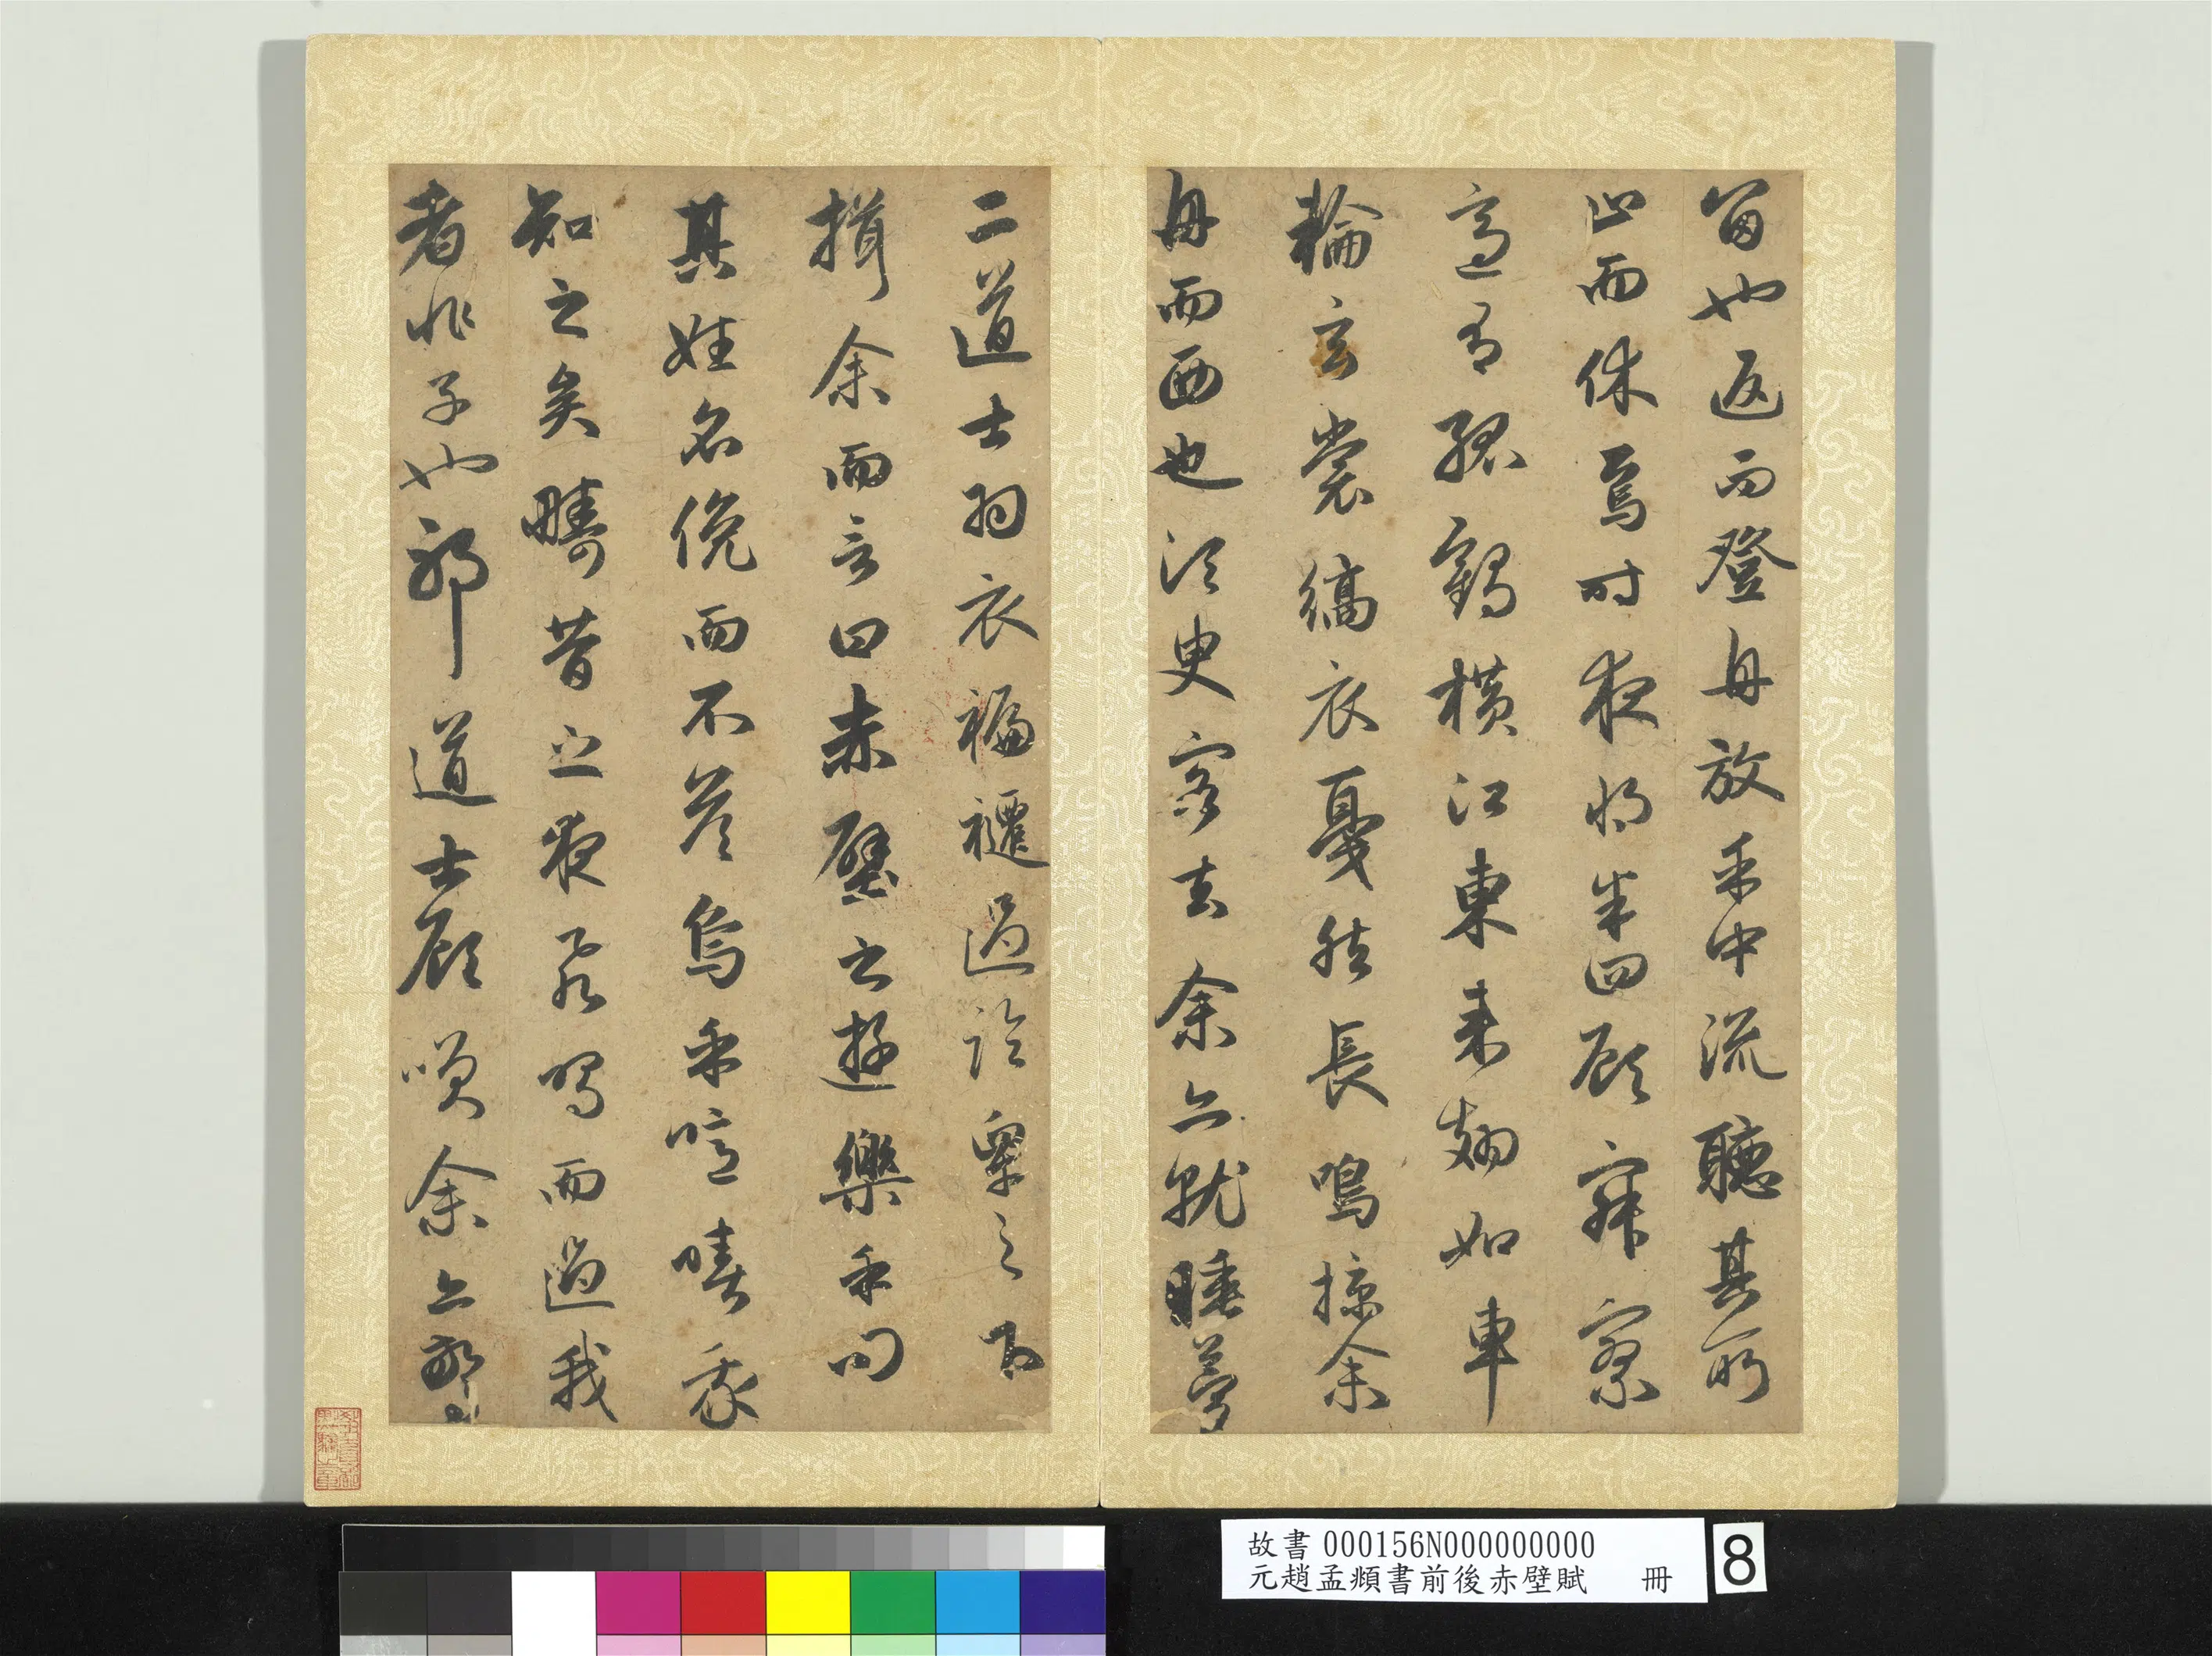 留也返而登舟放乎中流聽其所
止而休焉時夜將半四顧寂寥
適有孤鶴橫江東來翅如車
輪玄裳縞衣戛然長鳴掠余
舟而西也須臾客去余亦就睡夢
二道士羽衣蹁躚過臨皋之下
揖余而言曰赤壁之遊樂乎問
其姓名俛而不答嗚乎噫嘻我
知之矣疇昔之夜飛鳴而過我
者非子也耶道士顧笑余亦驚
故書 000156N000000000
元趙孟頫書前後赤壁賦 冊
8